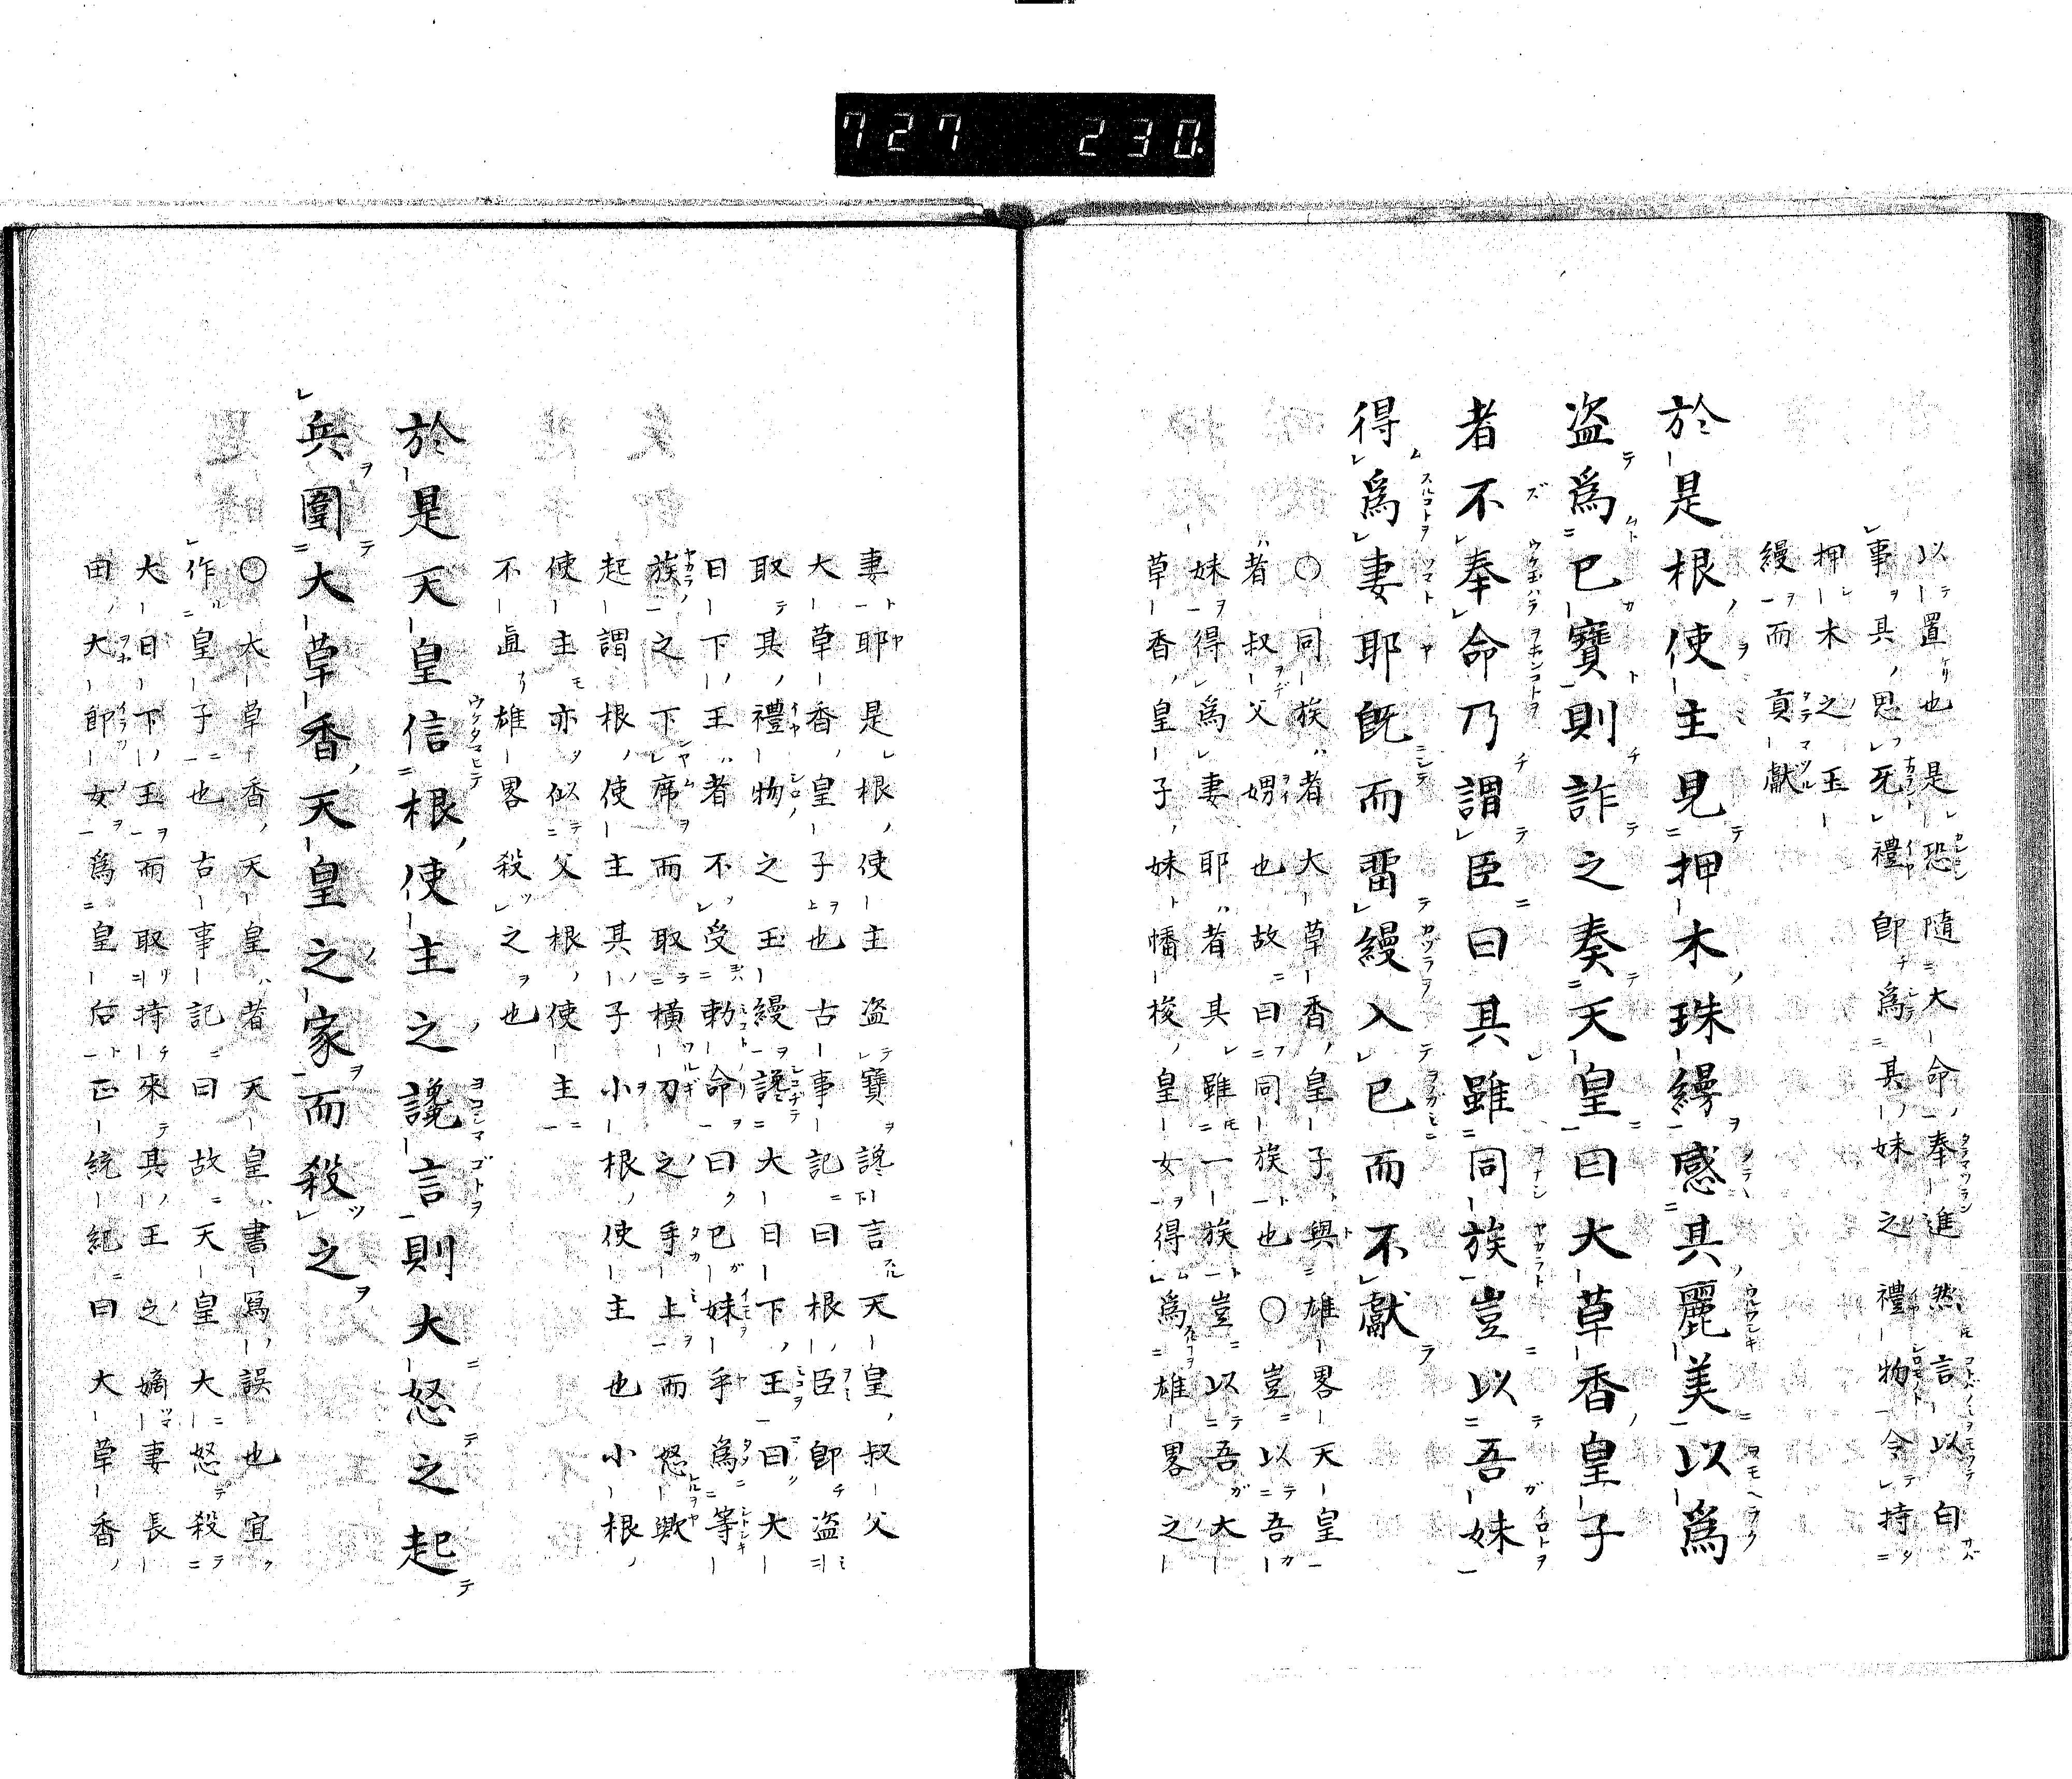 727 230.
以置也是恐隨大命奉進然言以白
事其思无禮即爲其妹之禮物令持
押木之玉
縵而貢獻
於是根使主見押木珠縵感其麗美以爲
盗爲已寶則詐之奏天皇曰大草香皇子
者不奉命乃謂臣曰其雖同族豈以吾妹
得爲妻耶既而畱縵入已而不獻
○同族者大草香皇子與雄畧天皇
者叔父娚也故曰同族也○豈以吾
妹得爲妻耶者其雖一族豈以吾大
草香皇子妹幡梭皇女得爲雄畧之
妻耶是根使主盗寶讒言天皇叔父
大草香皇子也古事記曰根臣即盗
取其禮物之玉縵讒大日下王曰大
日下王者不受勅命曰已妹乎爲等
族之下席而取横刀之手上而怒歟
起謂根使主其子小根使主也小根
使主亦似父根使主
不眞雄畧殺之也
於是天皇信根使主之讒言則大怒之起
兵圍大草香天皇之家而殺之
○大草香天皇者天皇書寫誤也宜
作皇子也古事記曰故天皇大怒殺
大日下王而取持來其王之嫡妻長
田大郎女爲皇后正統紀曰大草香